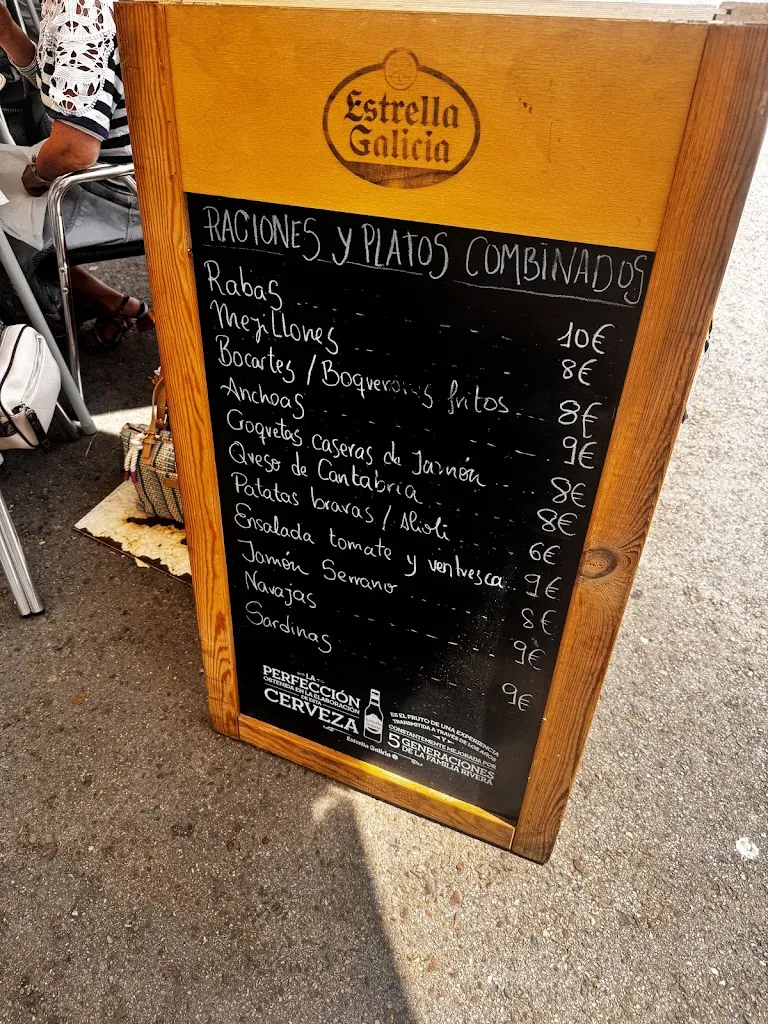 Estrella
Galicia
RACIONES Y PLATOS COMBINADOS
Rabas 10€
Mejillones 8€
Bocartes / Boquerones fritos 8€
Anchoas 9€
Croquetas caseras de Jamón 8€
Queso de Cantabria 8€
Patatas bravas / Alioli 6€
Ensalada tomate y ventresca 9€
Jamón Serrano 8€
Navajas 9€
Sardinas 9€
LA
PERFECCIÓN
OBTENIDA EN LA ELABORACIÓN
DE ESTA
CERVEZA
Estrella Galicia
ES EL FRUTO DE UNA EXPERIENCIA
TRANSMITIDA A TRAVÉS DE LOS AÑOS
Y
CONSTANTEMENTE MEJORADA POR
5 GENERACIONES
DE LA FAMILIA RIVERA